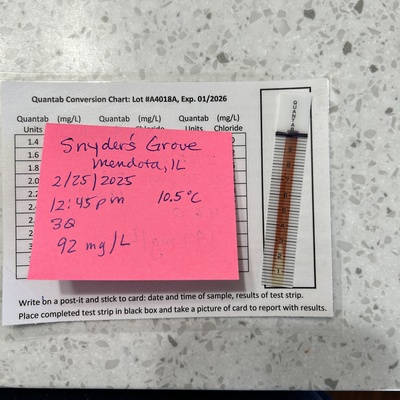 Quantab Conversion Chart: Lot #A4018A, Exp. 01/2026
Quantab (mg/L) Quantab (mg/L) Quantab (mg/L)
Units Units Chloride
1.4
1.6
1.8
2.0
2.2
2.4
Snyder's Grove
Mendota, IL
2/25/2025
12:45pm 10.5°C
3Q
92 mg/L
QUANTAB
Write on a post-it and stick to card: date and time of sample, results of test strip.
Place completed test strip in black box and take a picture of card to report with results.